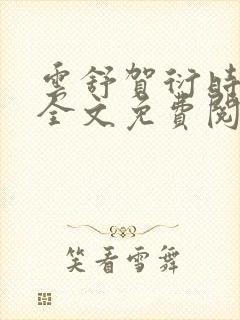 云舒贺衍时
全文免费阅
笑看雪舞